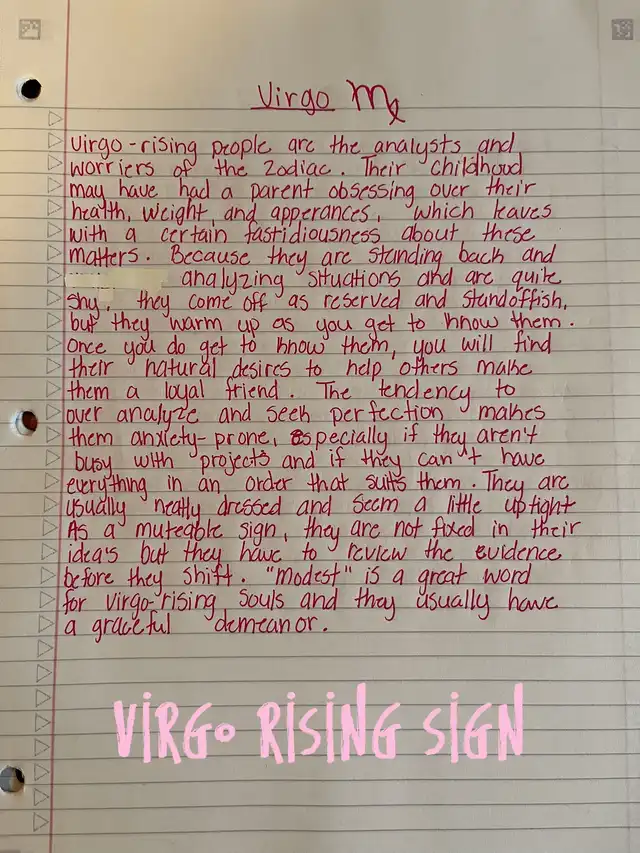 Virgo ♍
Virgo-rising people are the analysts and
worriers of the Zodiac. Their childhood
may have had a parent obsessing over their
health, weight, and apperances, which leaves
with a certain fastidiousness about these
matters. Because they are standing back and
analyzing situations and are quite
shy, they come off as reserved and standoffish,
but they warm up as you get to know them.
Once you do get to know them, you will find
their natural desires to help others make
them a loyal friend. The tendency to
over analyze and seek perfection makes
them anxiety-prone, especially if they aren't
busy with projects and if they can't have
everything in an order that suits them. They are
usually neatly dressed and seem a little uptight
As a muteable sign, they are not fixed in their
idea's but they have to review the evidence
before they shift. "Modest" is a great word
for virgo-rising souls and they usually have
a graceful demeanor.
VIRGO RISING SIGN